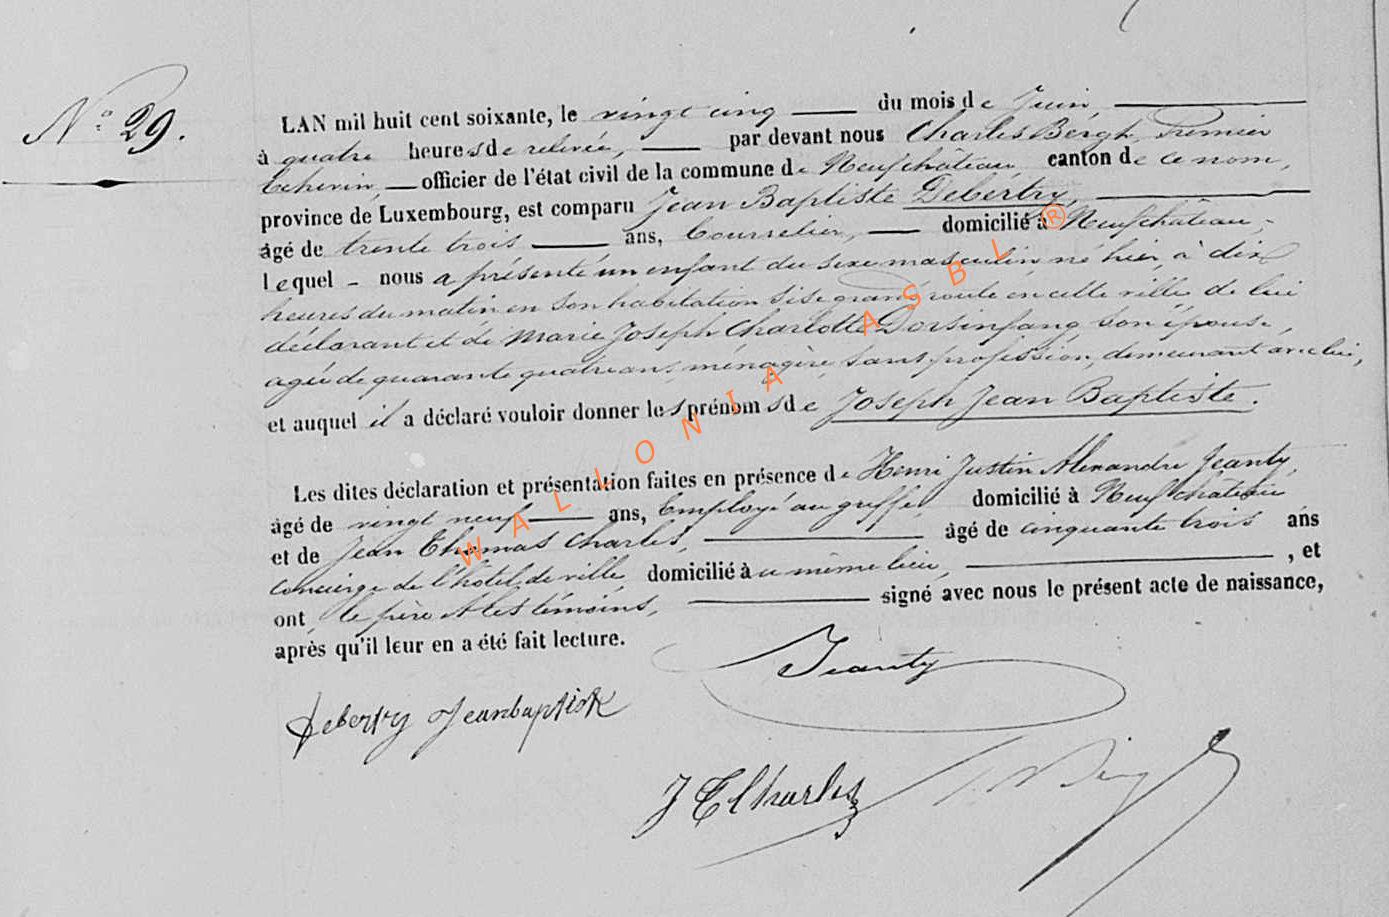 N.° 29.
LAN mil huit cent soixante, le vingt cinq du mois de Juin
à quatre heures de relevée, par devant nous Charles Bergh, Premier
Echevin, officier de l'état civil de la commune de Neufchâteau, canton de ce nom,
province de Luxembourg, est comparu Jean Baptiste Debertry,
âgé de trente trois ans, Bourrelier, domicilié à Neufchâteau,
lequel nous a présenté un enfant du sexe masculin né hier, à dix
heures du matin en son habitation sise grand route en cette ville de lui
déclarant et de Marie Joseph Charlotte Dorsinfang son épouse,
agée de quarante quatre ans, ménagère, sans profession, demeurant avec lui,
et auquel il a déclaré vouloir donner les prénoms de Joseph Jean Baptiste.
Les dites déclaration et présentation faites en présence de Henri Justin Alexandre Jeanty,
âgé de vingt neuf ans, Employé au greffe domicilié à Neufchâteau
et de Jean Thomas Charles, âgé de cinquante trois ans
concierge de l'hôtel de ville, domicilié au même lieu, , et
ont le père et les témoins, signé avec nous le présent acte de naissance,
après qu'il leur en a été fait lecture.
Jeanty
Debertry Jeanbaptiste
J T Charles
WALLONIA ASBL ®